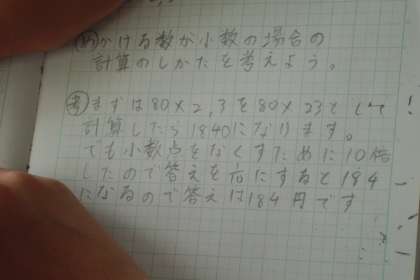 めかける数が小数の場合の
計算のしかたを考えよう。
考まずは80×2,3を80×23として
計算したら1840になります。
でも小数点をなくすために10倍
したので答えを
にすると184
になるので答えは184円です